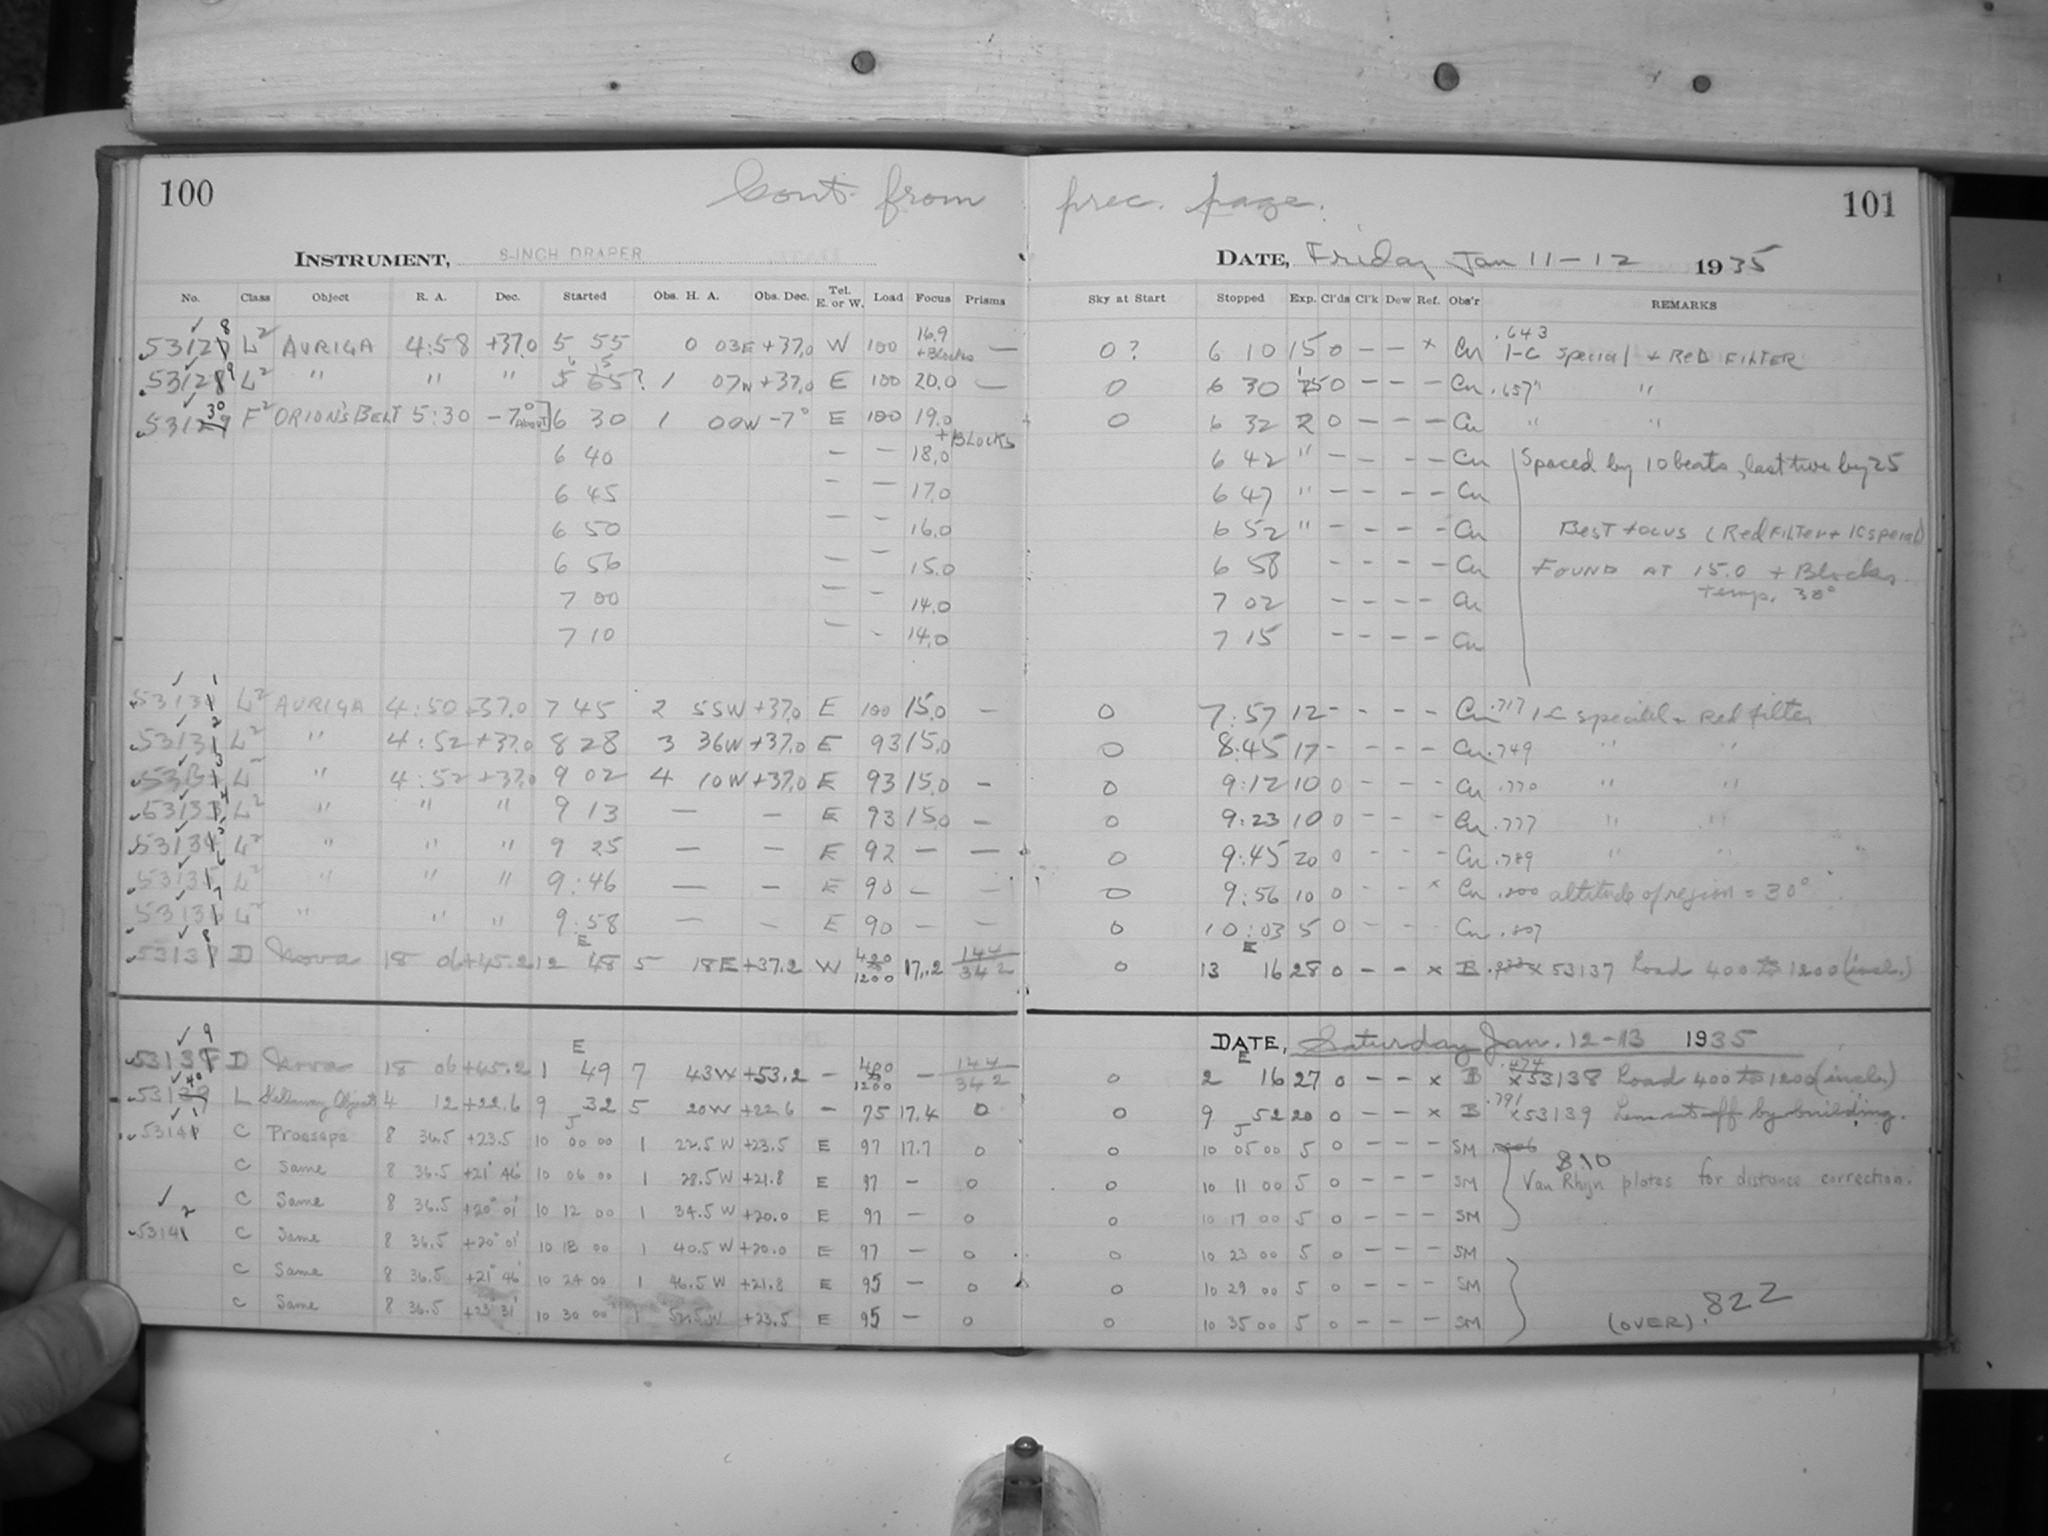 100 Cont. from prec. page. 101
INSTRUMENT, 8-INCH DRAPER DATE, Friday Jan 11-12 1935
No. Class Object R. A. Dec. Started Obs. H. A. Obs. Dec. Tel. E. or W. Load Focus Prisms Sky at Start Stopped Exp. Cl'ds Cl'k Dew Ref. Obs'r REMARKS
✓ 8 .643
L² AURIGA 4:58 +37.0 5 55 0 03E +37.0 W 100 16.9 +Blocks — 0? 6 10 15 0 — — x Cu 1-C special + RED FILTER
53128 9 L² " " " 1 07W +37.0 E 100 20.0 — 0 6 30 0 — — — Cu .657 " "
53129 30 F² ORION'S BELT 5:30 -7° ABOUT 6 30 1 00W -7° E 100 19.0 + BLOCKS 0 6 32 2 0 — — — Cu " "
6 40 — — 18.0 6 42 " — — — — Cu Spaced by 10 beats, last two by 25
6 45 — — 17.0 6 47 " — — — — Cu
6 50 — — 16.0 6 52 " — — — — Cu Best focus (Red Filter + 1C special)
6 56 — — 15.0 6 58 — — — — Cu FOUND AT 15.0 + Blocks
temp. 30°
7 00 — — 14.0 7 02 — — — — Cu
7 10 — — 14.0 7 15 — — — — Cu
✓ 1
L² AURIGA 4:50 +37.0 7 45 2 55W +37.0 E 100 15.0 — 0 7:57 12 — — — — Cu .717 1-C special + Red filter
53131 2 L² " 4:52 +37.0 8 28 3 36W +37.0 E 93 15.0 0 8:45 17 — — — — Cu .749 " "
3 L² " 4:52 +37.0 9 02 4 10W +37.0 E 93 15.0 — 0 9:12 10 0 — — — Cu .770 " "
53133 4 L² " " " 9 13 — — E 93 15.0 — 0 9:23 10 0 — — — Cu .777 " "
53134 5 L² " " " 9 25 — — E 92 — — 0 9:45 20 0 — — — Cu .789 " "
53135 6 L² " " " 9:46 — — E 90 — — 0 9:56 10 0 — — x Cu .800 altitude of region = 30°
53136 7 L² " " " 9:58 — — E 90 — — 0 10:03 5 0 — — — Cu .807
53137 8 D Nova 18 06 +45.2 12 E 48 5 18E +37.2 W 400 to 1200 17.2 144 342 0 13 E 16 28 0 — — x B x 53137 Load 400 to 1200 (incl.)
DATE, Saturday Jan. 12-13 1935
53138 9 D Nova 18 06 +45.2 1 E 49 7 43W +53.2 — 400 to 1200 — 144 342 0 2 E 16 27 0 — — x B .474 x53138 Load 400 to 1200 (incl.)
53139 40 L Objects 4 12 +22.6 9 32 5 20W +22.6 — 75 17.4 0 0 9 52 20 0 — — x B .791 x53139 Lens cut off by building.
C Praesepe 8 36.5 +23.5 10 J 00 00 1 22.5 W +23.5 E 97 17.7 0 0 10 J 05 00 5 0 — — — SM
810
C Same 8 36.5 +21° 46' 10 06 00 1 28.5 W +21.8 E 97 — 0 0 10 11 00 5 0 — — — SM Van Rhijn plates for distance correction.
C Same 8 36.5 +20° 01' 10 12 00 1 34.5 W +20.0 E 97 — 0 0 10 17 00 5 0 — — — SM
53141 2 C Same 8 36.5 +20° 01' 10 18 00 1 40.5 W +20.0 E 97 — 0 0 10 23 00 5 0 — — — SM
C Same 8 36.5 +21° 46' 10 24 00 1 46.5 W +21.8 E 95 — 0 0 10 29 00 5 0 — — — SM
C Same 8 36.5 +23° 31' 10 30 00 1 52.5 W +23.5 E 95 — 0 0 10 35 00 5 0 — — — SM (OVER) .822